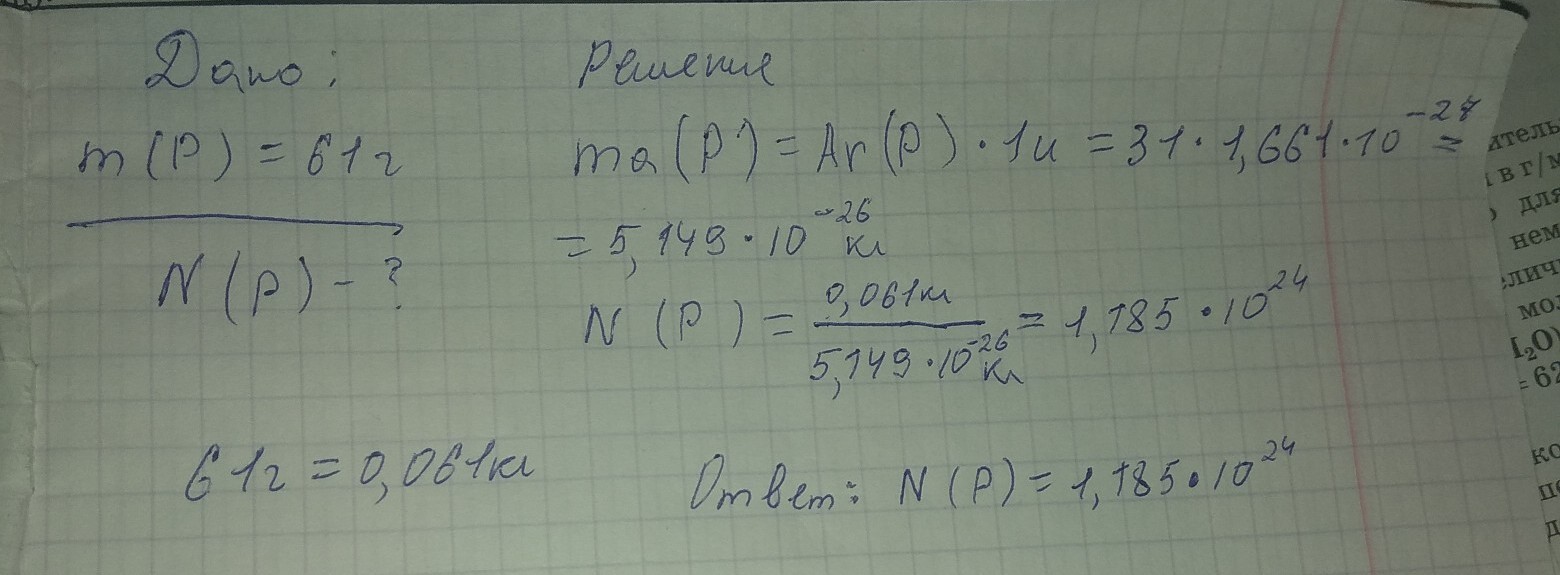 Дано:
m(P) = 61г
N(P) - ?
61г = 0,061кг
Решение
ma(P) = Ar(P) · 1u = 31 · 1,661 · 10⁻²⁷ =
= 5,149 · 10⁻²⁶ кг
N(P) = 0,061кг / 5,149 · 10⁻²⁶ кг = 1,185 · 10²⁴
Ответ: N(P) = 1,185 · 10²⁴
в г/м
для
нем
I₂O)
= 62